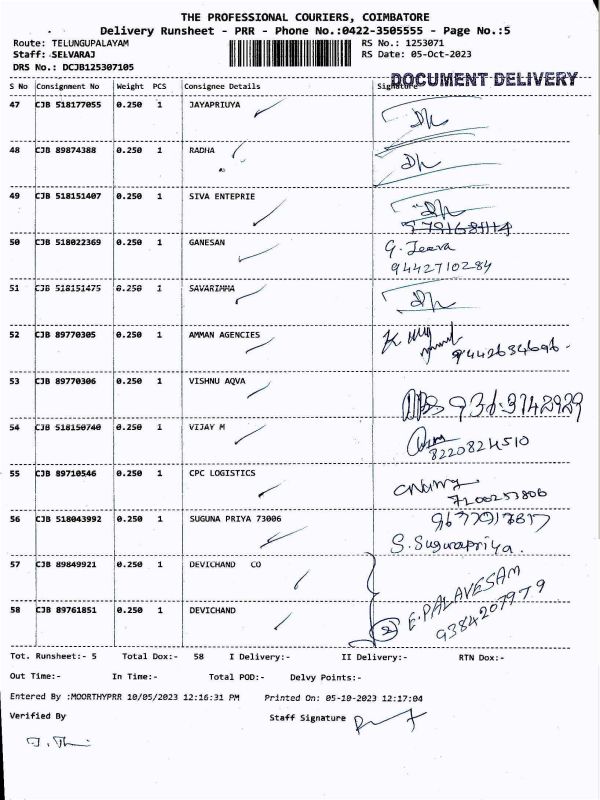 THE PROFESSIONAL COURIERS, COIMBATORE
Delivery Runsheet - PRR - Phone No.:0422-3505555 - Page No.:5
Route: TELUNGUPALAYAM RS No.: 1253071
Staff: SELVARAJ RS Date: 05-Oct-2023
DRS No.: DCJB125307105
DOCUMENT DELIVERY
S No Consignment No Weight PCS Consignee Details Signature
47 CJB 518177055 0.250 1 JAYAPRIUYA
48 CJB 89874388 0.250 1 RADHA
49 CJB 518151407 0.250 1 SIVA ENTEPRIE
50 CJB 518022369 0.250 1 GANESAN G. Jeeva
9442710284
51 CJB 518151475 0.250 1 SAVARIMMA
52 CJB 89770305 0.250 1 AMMAN AGENCIES
53 CJB 89770306 0.250 1 VISHNU AQVA
54 CJB 518150740 0.250 1 VIJAY M
8220824510
55 CJB 89710546 0.250 1 CPC LOGISTICS
7200257806
56 CJB 518043992 0.250 1 SUGUNA PRIYA 73006
S. Sugunapriya.
57 CJB 89849921 0.250 1 DEVICHAND CO
E. PALAVESAM
58 CJB 89761851 0.250 1 DEVICHAND 2 9384207979
Tot. Runsheet:- 5 Total Dox:- 58 I Delivery:- II Delivery:- RTN Dox:-
Out Time:- In Time:- Total POD:- Delvy Points:-
Entered By :MOORTHYPRR 10/05/2023 12:16:31 PM Printed On: 05-10-2023 12:17:04
Verified By Staff Signature